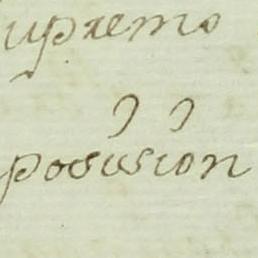 upremo
posision